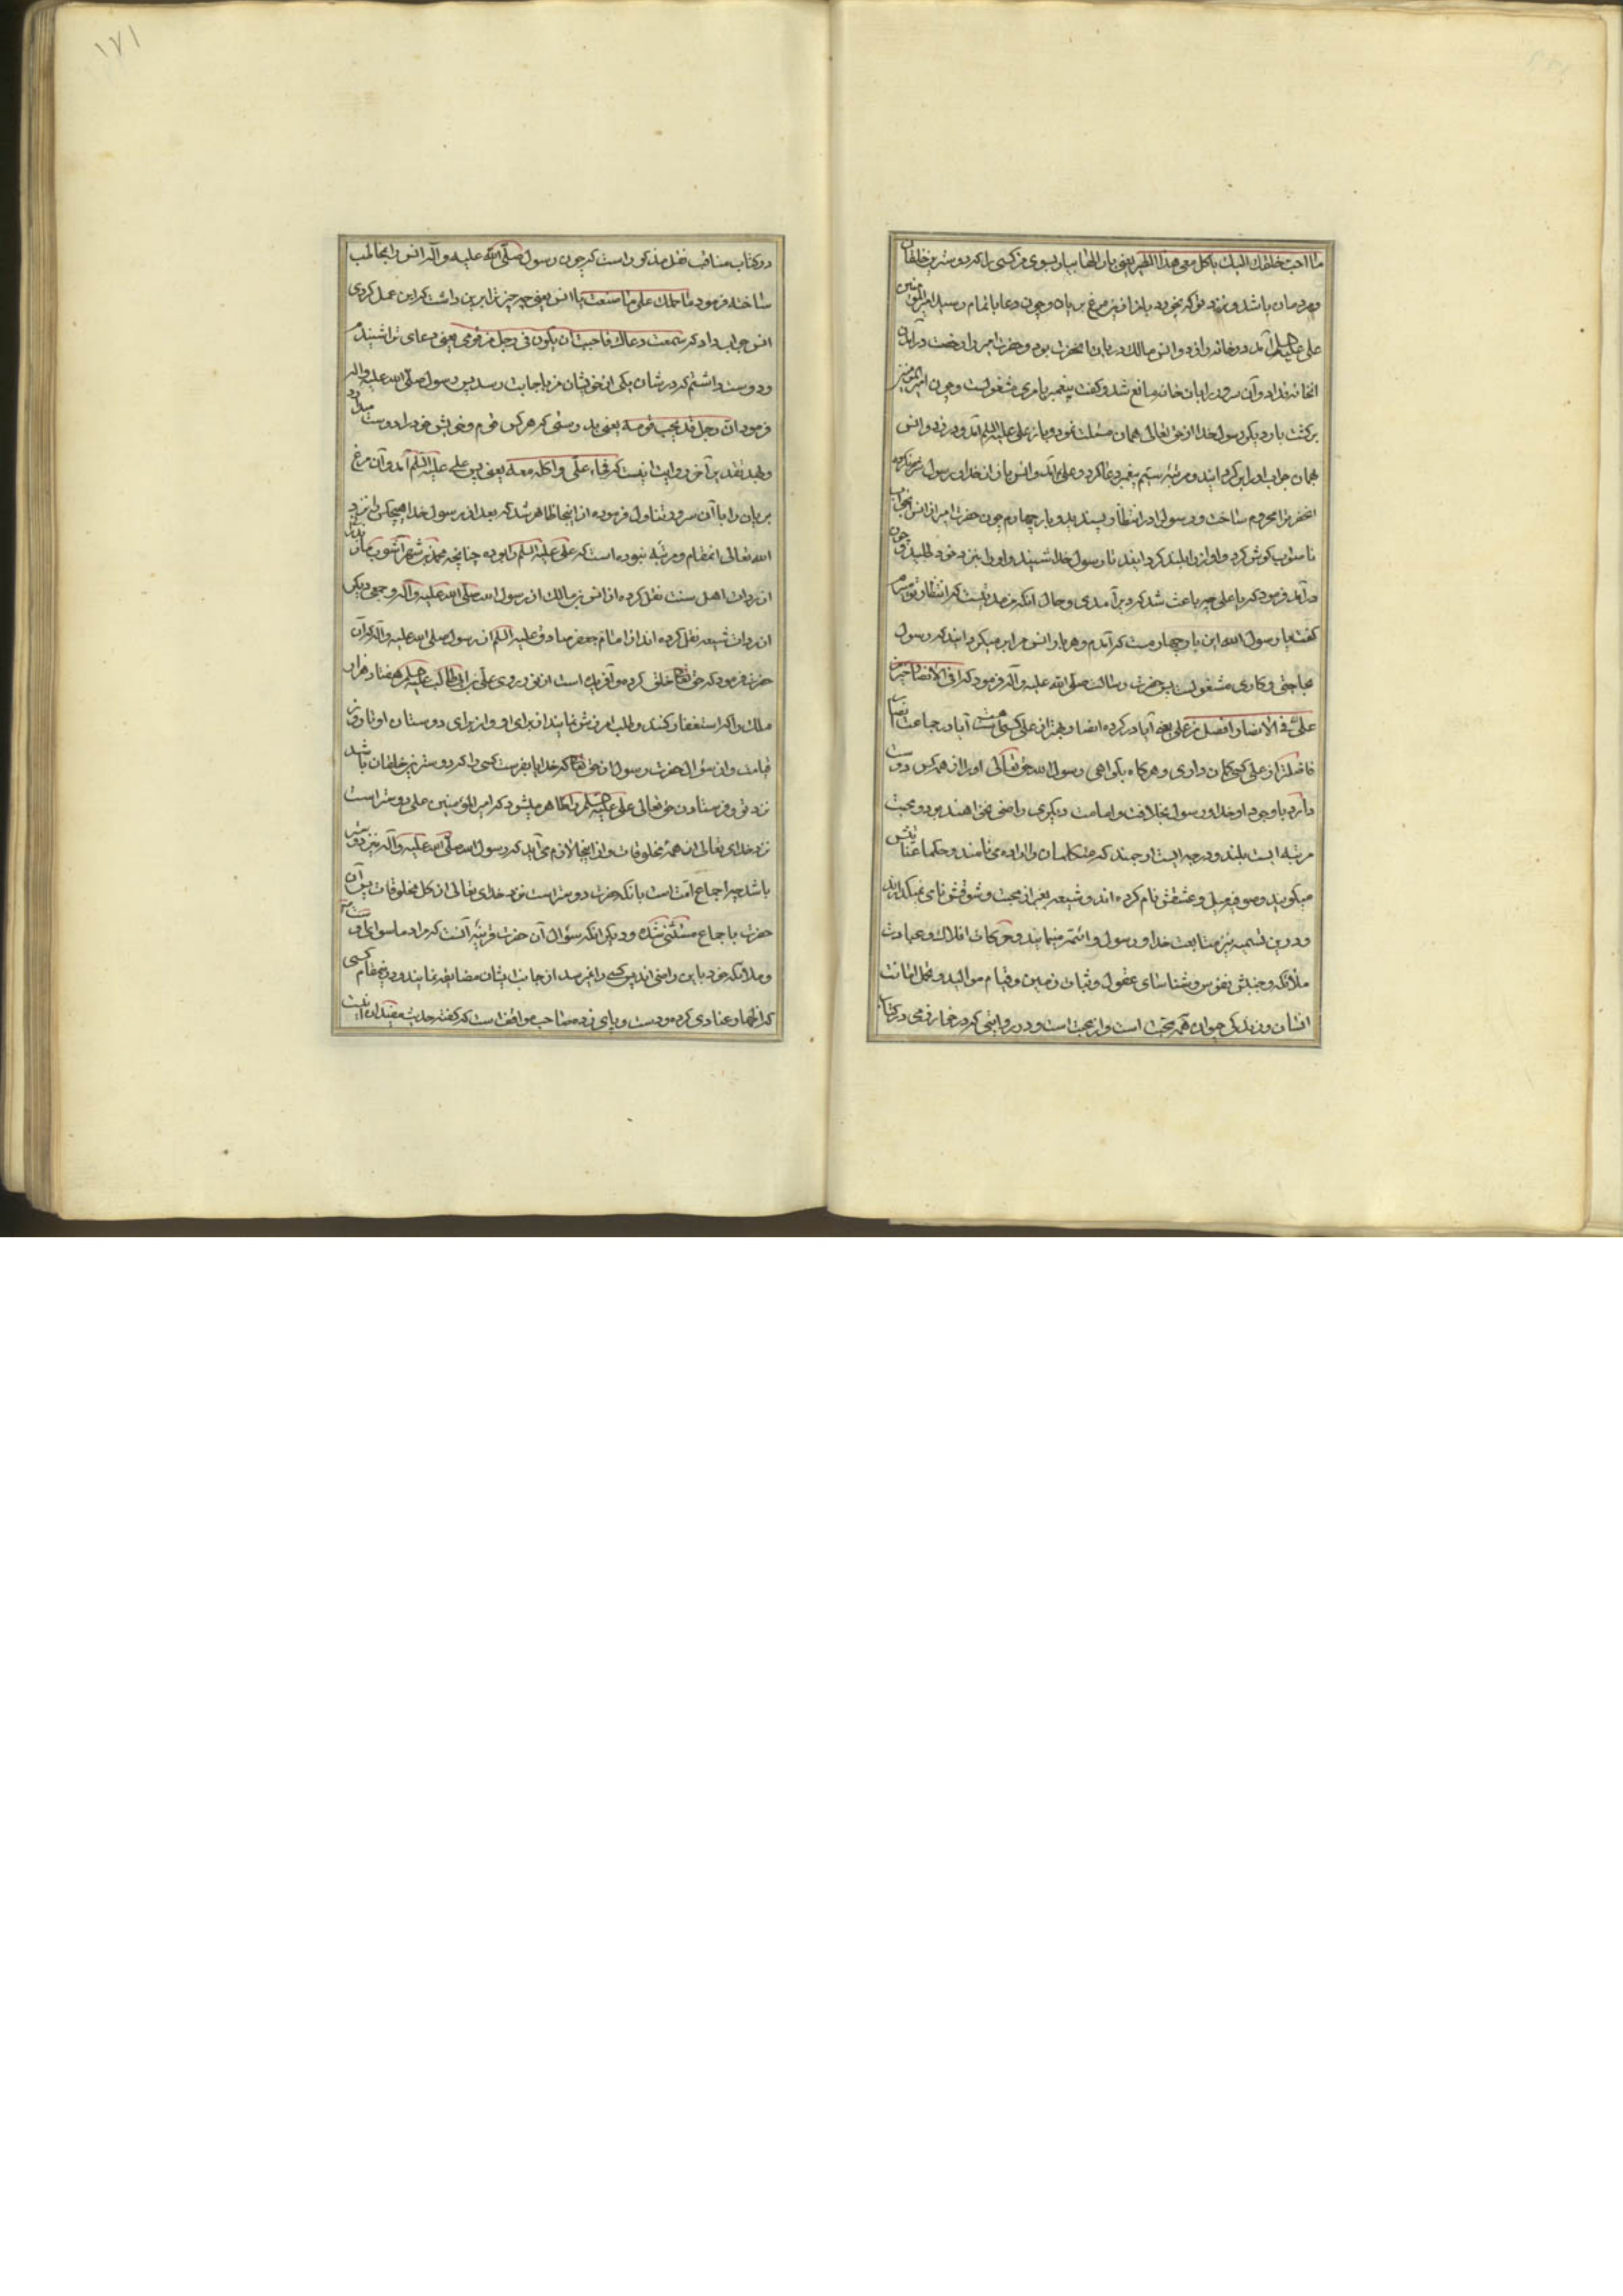 ما احب خلقك الیک یاکل معی هذا الطیر یعنی بار الها بیاور بسوی من کسی را که دوسترین خلقان
و مردمان باشد و نزد تو که بخورد با من ازین مرغ بریان و چون دعا باتمام رسید امیر المؤمنین
علی علیه السلم آمد و در خانه را زد و انس مالک دربان آنحضرت بود و حضرت امیر را رخصت در آمدن
انخانه نداد و آن سرور را بان خانه مانع شد و گفت پیغمبر بامری مشغولست و چون امیر المؤمنین
برگشت بار دیگر رسول خدا از حق تعالی همان مسئلت نمود و باز علی علیه السلم آمد و در زد و انس
بهمان جواب او را برگردانید و مرتبه سیم پیغمبر دعا کرد و علی آمد و انس باز از خدای رسول شرم نکرده
انحضرترا محروم ساخت و رسول را در انتظار پسندید و بار چهارم چون حضرت امیر از انس جواب
نا صواب گوش کرد و اواز را بلند گردانید تا رسول خدا شنید و او را بنزد خود طلبید و چون
در آمد فرمود که یا علی چه باعث شد که دیر آمدی و حال انکه من مدتیست که انتظار تو میبرم
گفت یا رسول الله این بار چهارمست که آمدم و هر بار انس مرا بر میگرداند که رسول
بحاجتی و کاری مشغولست پس حضرت رسالت صلی الله علیه و آله فرمود که افی الانصار خیر من
علی افی الانصار افضل من علی یعنی آیا در گروه انصار بهتر از علی کسی هست آیا در جماعت انصار
فاضلتر از علی کسی گمان داری و هر گاه بگواهی رسول الله حق تعالی او را از همه کس دوست
دارد با وجود او خدا و رسول بخلافت و امامت دیگری راضی نخواهند بود و محبت
مرتبه ایست بلند و درجه ایست ارجمند که متکلمان اراده می نامند و حکما عنایتش
میگویند و صوفی میل و عشقش نام کرده اند و شیعه بغیر از محبت و شوقش نامی نمیگذارند
و درین تسمیه نیز متابعت خدا و رسول و ائمه مینمایند و حرکات افلاک و عبادت
ملائکه و جنبش نفوس و شناسای عقول و ثبات زمین و قیام موالید و تحمل امانت
انسان و زندگی حیوان همه محبت است و از محبت است و در روایتی که در خوارزمی در کتاب
در کتاب مناقب نقل مذکور است که چون رسول صلی الله علیه و آله انس را مخاطب
ساخته فرمود ما حملک علی ما صنعت یا انس یعنی چه چیز ترا برین داشت که این عمل کردی
انس جواب داد که سمعت دعاک فاحببت ان یکون فی رجل من قومی یعنی دعای ترا شنیدم
و دوست داشتم که در شان یکی از خویشان من باجابت رسد پس رسول صلی الله علیه و اله
فرمود ان رجل قد یحب قومه یعنی بدرستی که هر کس قوم و خویش خود را دوست میدارد
و بهر تقدیر آخر روایت اینست که فجاء علی و اکله معه یعنی پس علی علیه السلم آمد و آن مرغ
بریان را با آن سرور تناول فرموده از اینجا ظاهر شد که بعد از رسول خدا هیچکس را نزد
الله تعالی انمقام و مرتبه نبوده است که علی علیه السلم را بوده چنانچه محمد بن شهر آشوب مازندرانی
از مردان اهل سنت نقل کرده از انس بن مالک از رسول الله صلی الله علیه و آله و جمعی دیگر
از مردان شیعه نقل کرده اند از امام جعفر صادق علیه السلم از رسول صلی الله علیه و آله که آن
حضرت فرمود که حق تعالی خلق کرده و آفریده است از نور روی علی بن ابی طالب علیه السلم هفتاد هزار
ملک را که استغفار کنند و طلب امرزش نمایند از برای او و از برای دوستان او تا روز
قیامت و از سؤال حضرت رسول از حق تعالی که خدایا بفرست کسی را که دوسترین خلقان باشد
نزد تو و فرستادن حق تعالی علی علیه السلم را ظاهر میشود که امیر المؤمنین علی دوستر است
نزد خدای تعالی از همه مخلوقات و از اینجا لازم می آید که رسول الله صلی الله علیه و آله نیز دوستر
باشد چه اجماع امت است بانکه حضرت دوستر است نزد خدای تعالی از کل مخلوقات پس آن
حضرت باجماع مستثنی شده و دیگر انکه سؤال آن حضرت قرینه آنست که مراد ماسوای اوست
و ملائکه خود باین راضی اند پس کسی را نمیرسد از جانب ایشان مضایقه نمایند و درین مقام کسی
که اظهار عنادی کرده و دست و پای زده صاحب مواقف است که گفته حدیث مفید ان نیست